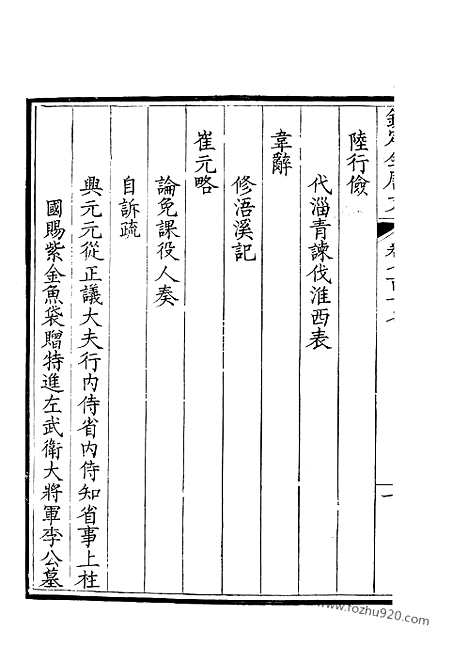 陸行儉
代淄青諫伐淮西表
韋辭
修浯溪記
崔元略
論免課役人奏
自訴疏
興元元從正議大夫行内侍省内侍知省事上柱
國賜紫金魚袋贈特進左武衛大將軍李公墓
一
www.fozhu920.com